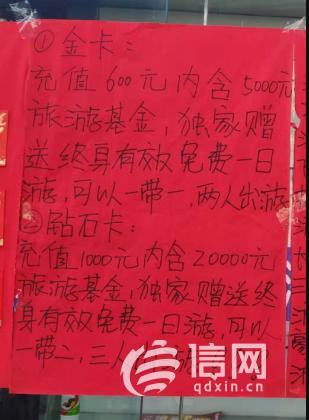 ①金卡：
充值600元内含5000元
旅游基金，独家赠
送终身有效免费一日
游，可以一带一，两人出游
②钻石卡：
充值1000元内含20000元
旅游基金，独家赠送终
身有效免费一日游，可以
一带二，三人
信网
qdxin.cn